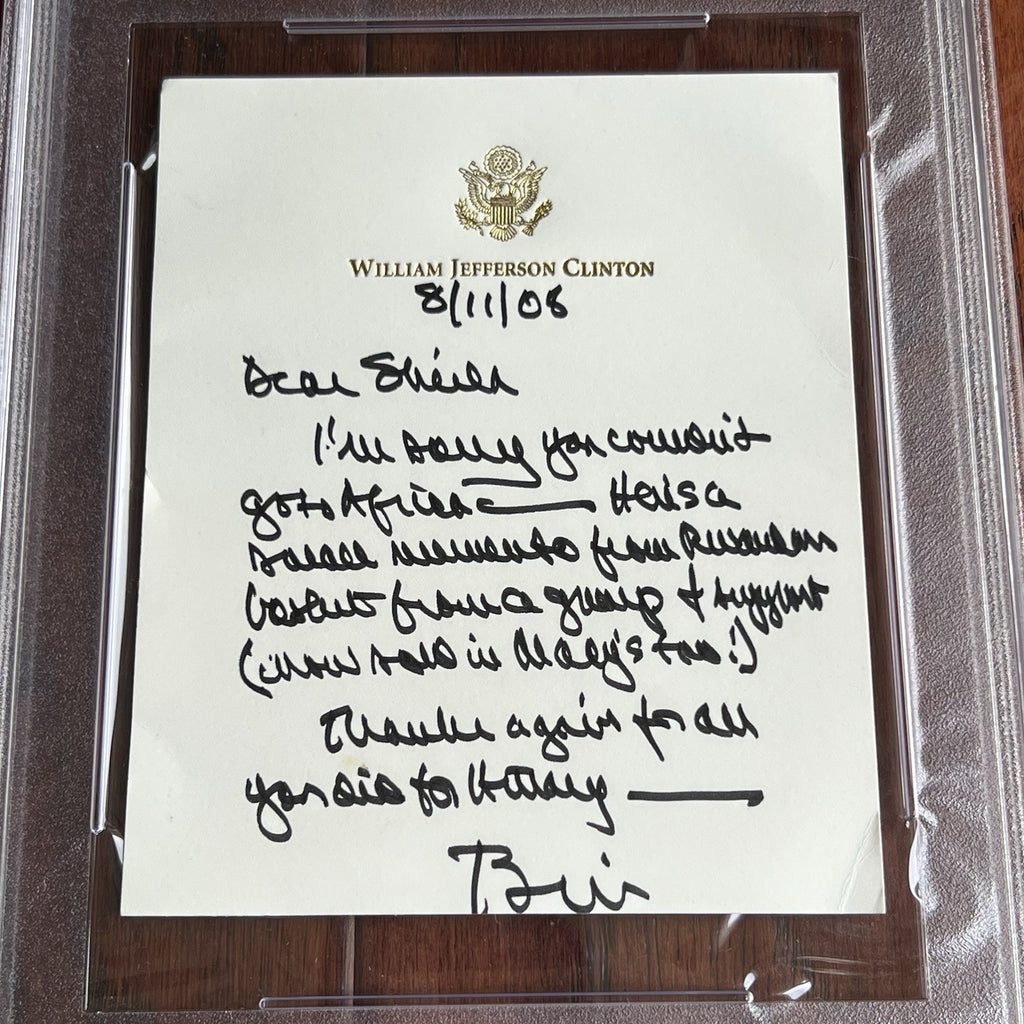 WILLIAM JEFFERSON CLINTON
8/11/08
Dear Sheila
I'm sorry you couldn't
go to Africa — Here's a
small memento from Rwandan
basket from a group I support
(now sold in Macy's too!)
Thanks again for all
you did for Hillary —
Bill